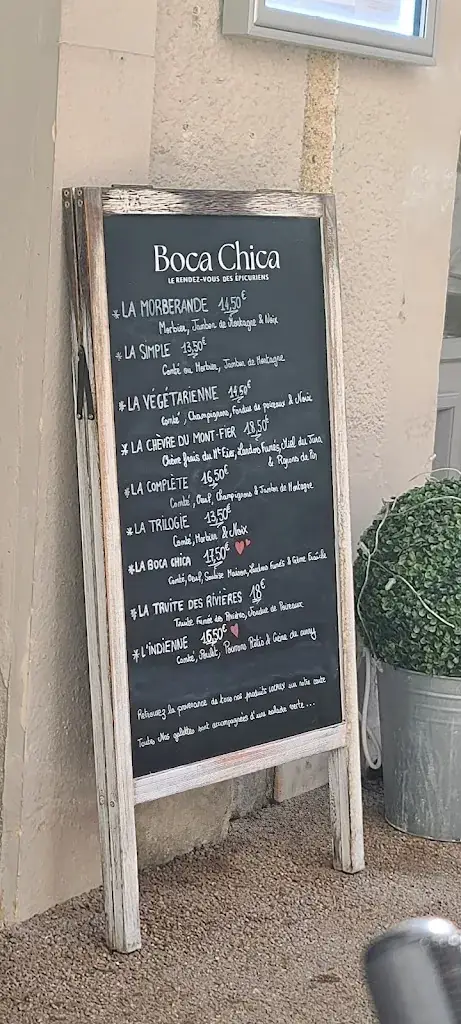 Boca Chica
LE RENDEZ-VOUS DES ÉPICURIENS
* LA MORBERANDE 14,50€
Morbier, Jambon de Montagne & Noix
* LA SIMPLE 13,50€
Comté ou Morbier, Jambon de Montagne
* LA VÉGÉTARIENNE 14,50€
Comté, Champignons, Fondue de poireaux & Noix
* LA CHÈVRE DU MONT-FIER 18,50€
Chèvre frais du Mt Fier, Lardons Fumés, Miel du Jura
& Pignons de Pin
* LA COMPLÈTE 16,50€
Comté, Oeuf, Champignons & Jambon de Montagne
* LA TRILOGIE 13,50€
Comté, Morbier & Noix
* LA BOCA CHICA 17,50€
Comté, Oeuf, Maison, Lardons Fumés & Crème Fraîche
* LA TRUITE DES RIVIÈRES 18€
Truite Fumée des Rivières, Fondue de Poireaux
* L'INDIENNE 16,50€
Comté, Poulet, Poivrons & Crème de curry
Retrouvez la provenance de tous nos produits LOCAUX sur notre carte
Toutes Nos galettes sont accompagnées d'une salade verte ...